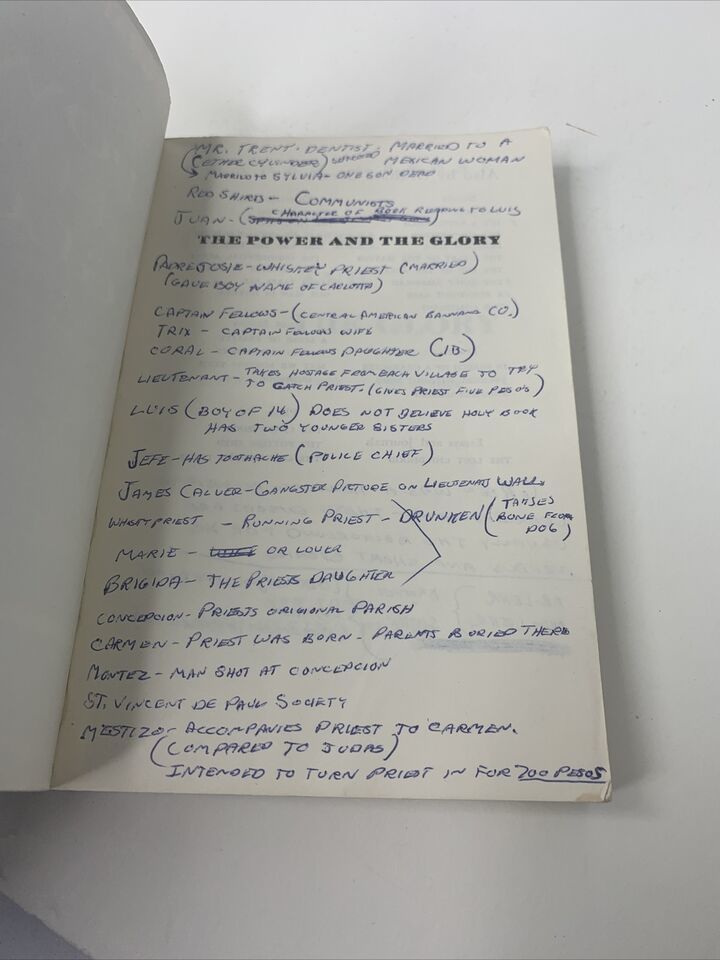 MR. TRENT - DENTIST. MARRIED TO A
(ETHER CYLINDER) MEXICAN WOMAN
MARRIED TO SYLVIA - ONE SON DEAD
RED SHIRTS - COMMUNISTS
JUAN - ( CHARACTER OF BOOK READING TO LUIS
THE POWER AND THE GLORY
PADRE JOSIE - WHISKEY PRIEST (MARRIED)
(GAVE BOY NAME OF CARLOTTA)
CAPTAIN FELLOWS - (CENTRAL AMERICAN BANNANA CO.)
TRIX - CAPTAIN FELLOWS WIFE
CORAL - CAPTAIN FELLOWS DAUGHTER (13)
LIEUTENANT - TAKES HOSTAGE FROM EACH VILLAGE TO TRY
TO CATCH PRIEST. (GIVES PRIEST FIVE PESOS)
LUIS (BOY OF 14) DOES NOT BELIEVE HOLY BOOK
HAS TWO YOUNGER SISTERS
JEFE - HAS TOOTHACHE (POLICE CHIEF)
JAMES CALVER - GANGSTER PICTURE ON LIEUTENATS WALL
- RUNNING PRIEST - DRUNKEN (TAKES
BONE FROM
DOG)
MARIE - OR LOVER
BRIGIDA - THE PRIESTS DAUGHTER
CONCEPCION - PRIESTS ORIGIONAL PARISH
CARMEN - PRIEST WAS BORN - PARENTS BURIED THERE
MONTEZ - MAN SHOT AT CONCEPCION
ST. VINCENT DE PAUL SOCIETY
MESTIZO - ACCOMPANIES PRIEST TO CARMEN.
(COMPARED TO JUDAS)
INTENDED TO TURN PRIEST IN FOR 700 PESOS